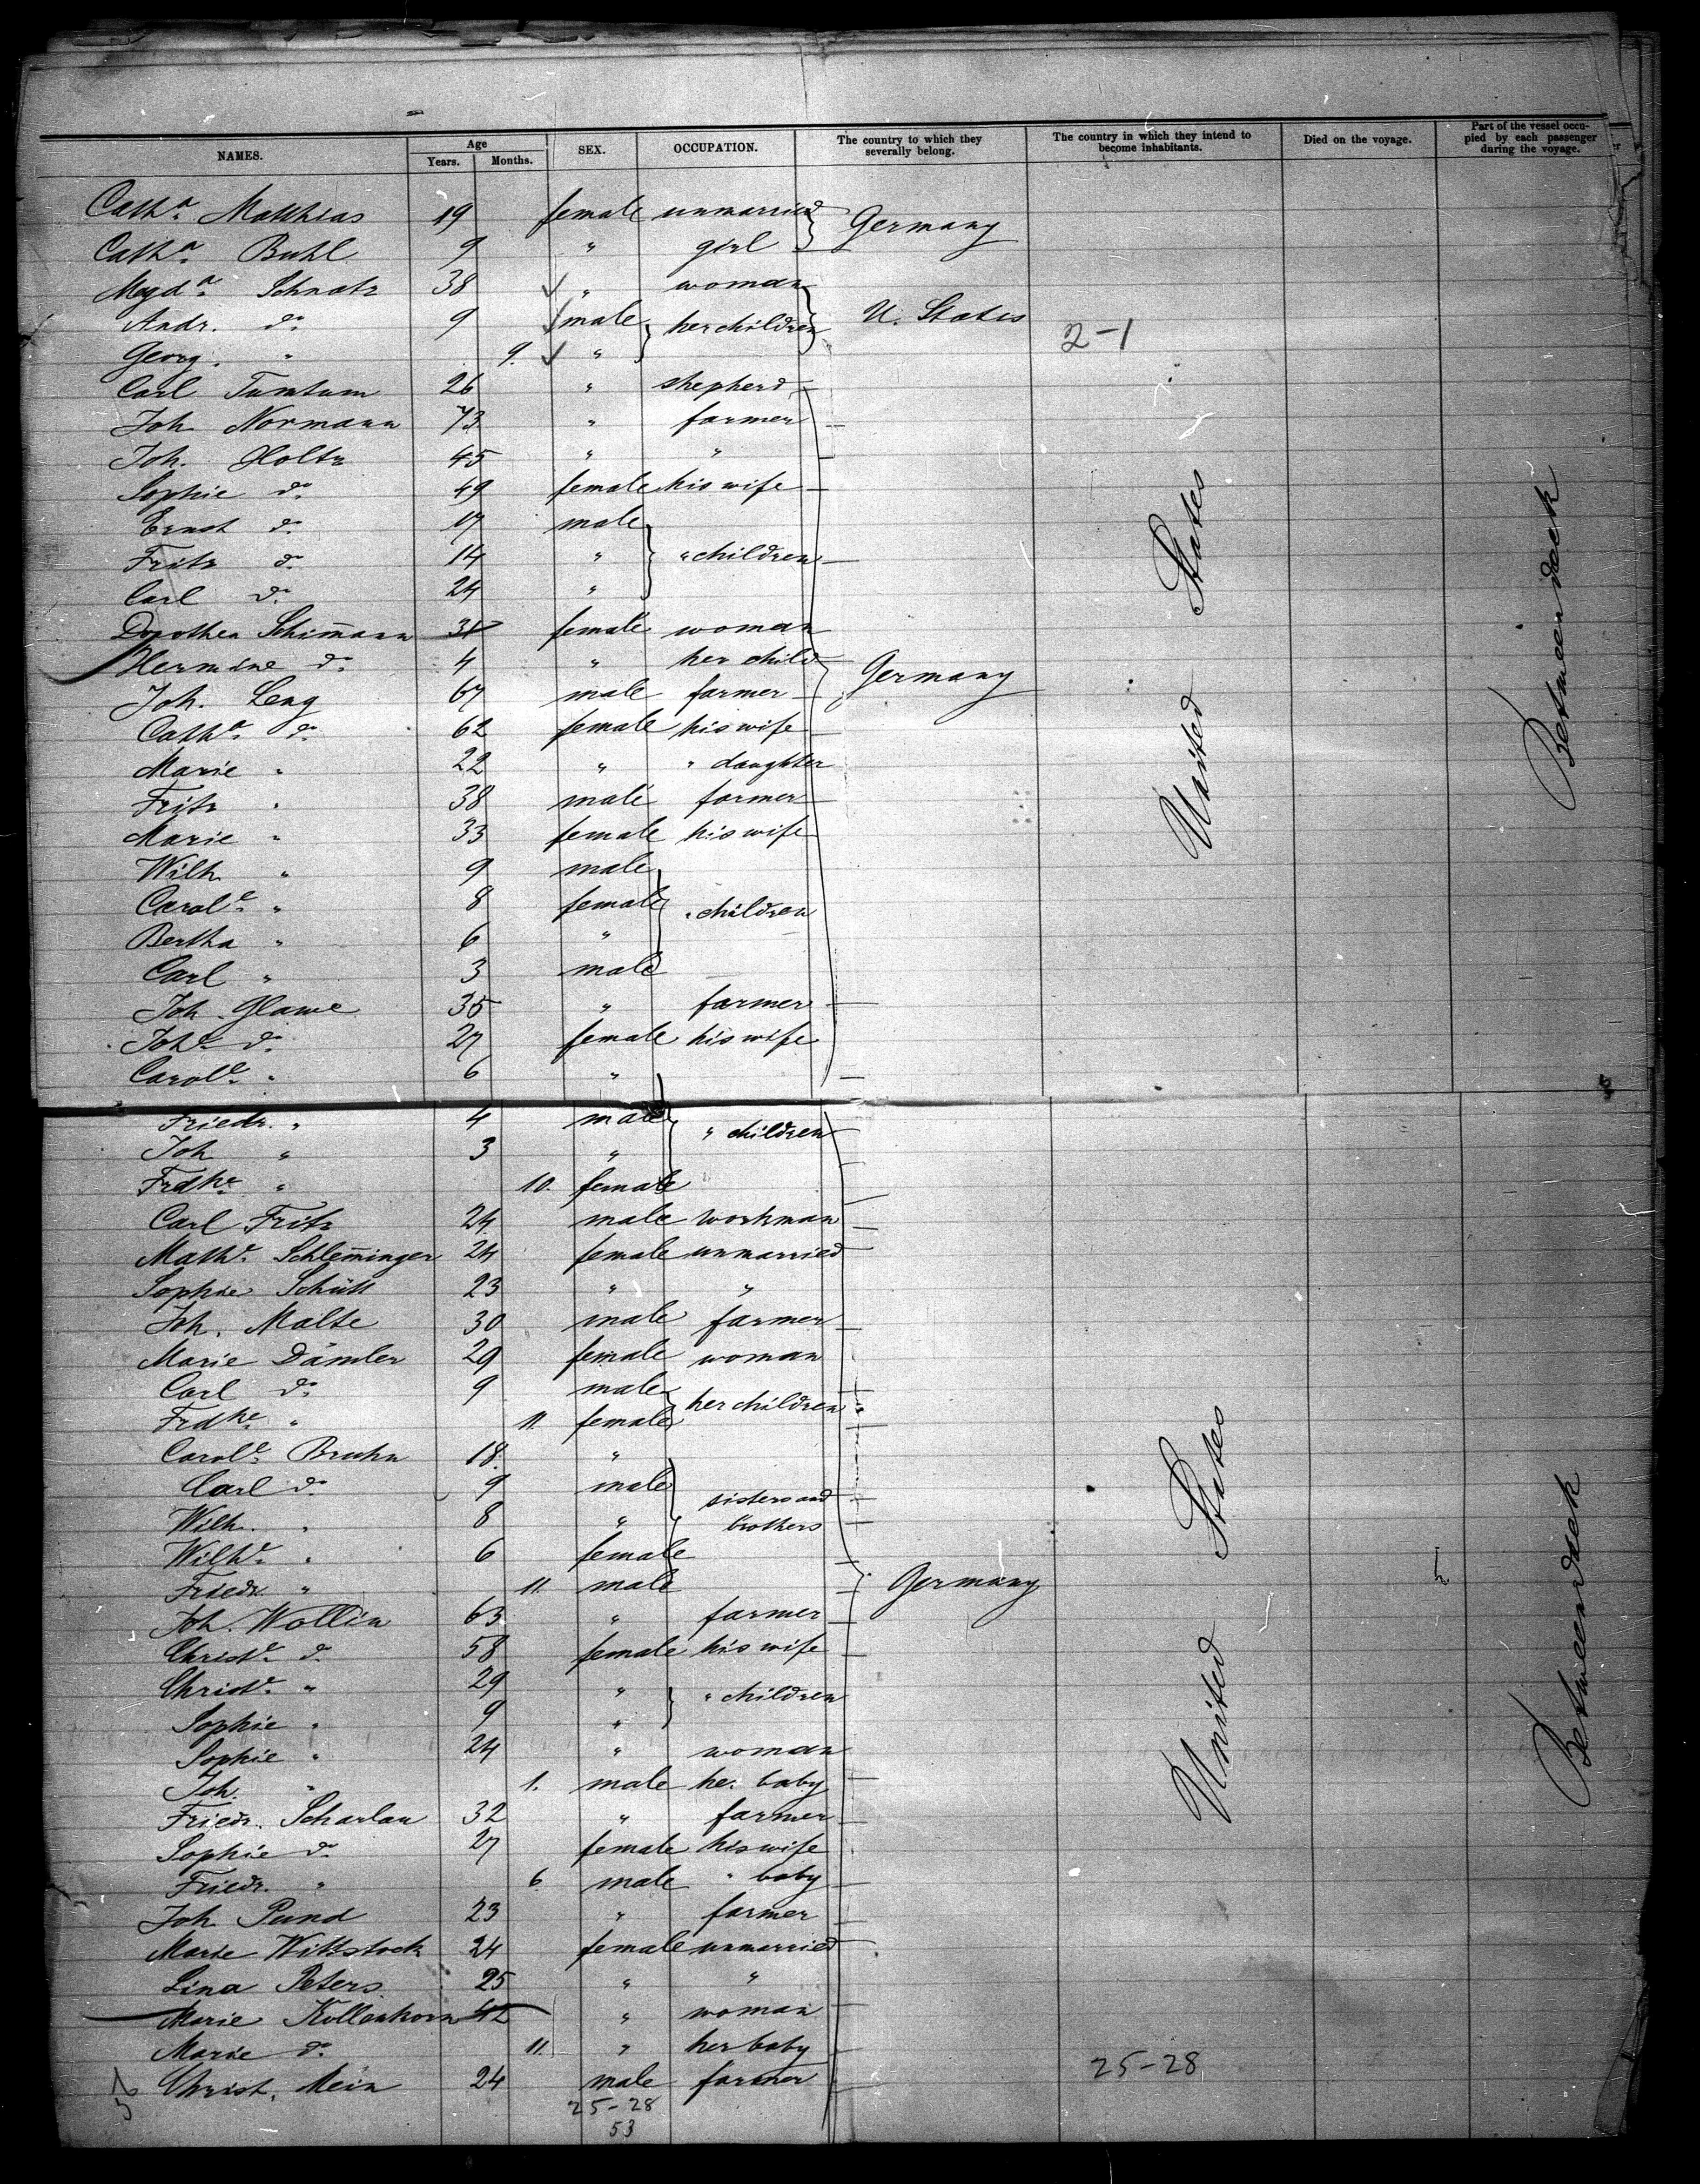 NAMES. Age Years. Months. SEX. OCCUPATION. The country to which they severally belong. The country in which they intend to become inhabitants. Died on the voyage. Part of the vessel occupied by each passenger during the voyage.
Cath.a Matthias 19 female unmarried Germany
Cath.a Buhl 9 " girl
Magd.a Schnatz 38 " woman
Andr. do 9 male her children U. States
Georg. " 9. " 2-1
Carl Tumtum 26 " shepherd
Joh Normann 73 " farmer
Joh. Holtz 45 " "
Sophie do 49 female his wife
Ernst do 17 male
Fritz do 14 " " children
Carl do 24 "
Dorothea Schim̄ann 31 female woman
Hermine do 4 " her child Germany
Joh. Leng 67 male farmer
Cath.a do 62 female his wife
Marie " 22 " " daughter
Fritz " 38 male farmer
Marie " 33 female his wife
Wilh " 9 male
Carol.e " 8 female " children
Bertha " 6 "
Carl " 3 male
Joh. Glawe 35 " farmer
Joh.e do 27 female his wife
Carol.e " 6 "
United States
Between deck
Friedr. " 4 male " children
Joh " 3 "
Frdke " 10. female
Carl Fritz 24 male workman
Math.e Schlem̄inger 24 female unmarried
Sophie Schütt 23 " "
Joh. Malte 30 male farmer
Marie Dämler 29 female woman
Carl do 9 male her children
Frdke " 11. female
Carol.e Bruhn 18. "
Carl do 9 male sisters and
Wilh. " 8 " brothers
Wilh.e " 6 female
Friedr. " 11. male Germany
Joh. Wollin 63 " farmer
Christ.e do 58 female his wife
Christ.e " 29 " " children
Sophie " 9 "
Sophie " 24 " woman
Joh. " 1. male he. baby
Friedr. Scharlau 32 " farmer
Sophie do 27 female his wife
Friedr. " 6. male " baby
Joh Pund 23 " farmer
Marie Wittstock 24 female unmarried
Lina Peters 25 " "
Marie Kollenhorn 42 " woman
Marie do 11. " her baby
Christ. Mein 24 male farmer 25-28
25-28
53
United States
Between deck